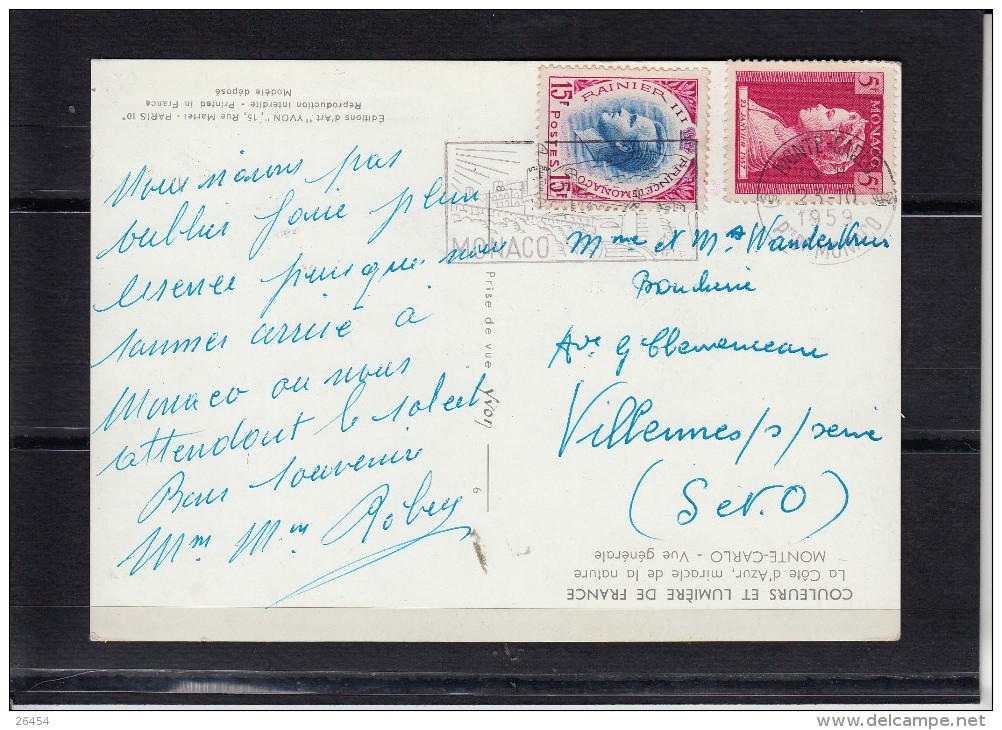 Editions d'Art "YVON", 15, Rue Martel - PARIS 10e
Reproduction interdite - Printed in France
Modèle déposé
15F
RAINIER III
PRINCE DE MONACO
POSTES
15F
5F
MONACO
5F
23 JANVIER 1957
MONTE-CARLO
23-10
1959
Pté DE MONACO
MONACO
Nous n'avons pas
faire plein
essence puisque nous
sommes arrivé à
Monaco ou nous
attendont le soleil
Bons souvenirs
Mme et Mr
Boucherie
Ave G Clemenceau
Villennes/s/seine
(S et O)
Prise de vue Yvon
6
COULEURS ET LUMIÈRE DE FRANCE
La Côte d'Azur, miracle de la nature
MONTE-CARLO - Vue générale
26454
www.delcampe.net